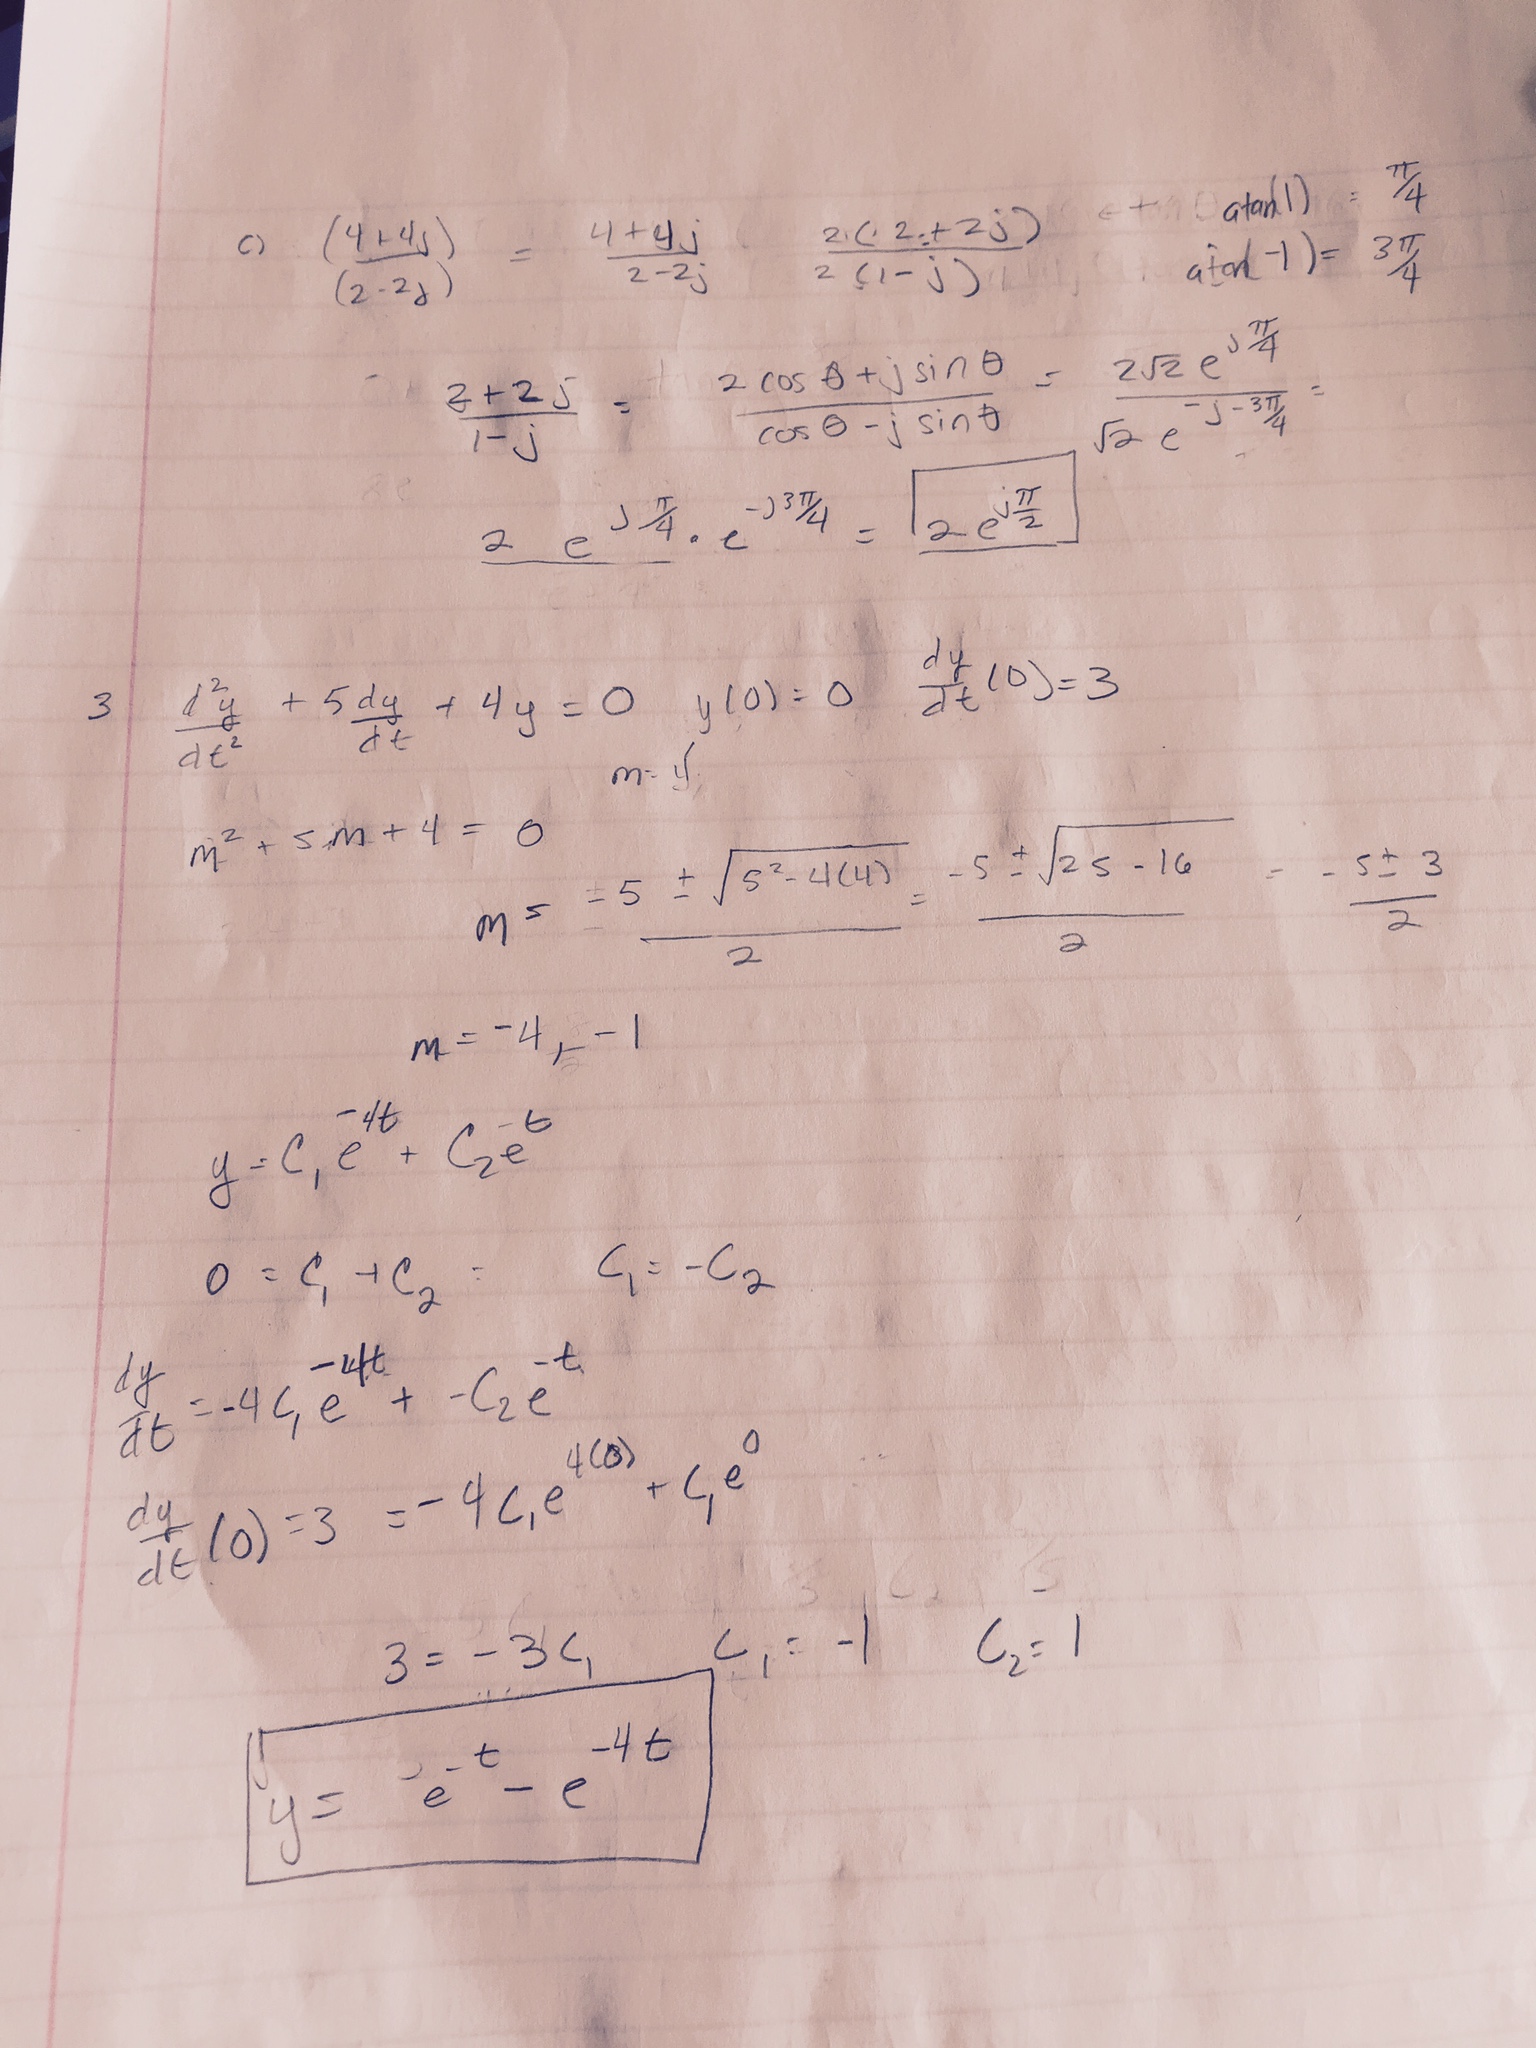 c) (4+4j)/(2-2j) = 4+4j/2-2j 2(2+2j)/2(1-j) atan(1) = π/4
atan(-1) = 3π/4
2+2j/1-j = 2cosθ+jsinθ/cosθ-jsinθ = 2√2 e^jπ/4 / √2 e^-j-3π/4 =
2 e^jπ/4 · e^-j3π/4 = 2e^jπ/2
3 d²y/dt² + 5dy/dt + 4y = 0 y(0) = 0 dy/dt(0) = 3
m = y
m² + 5m + 4 = 0
m = ±5 ± √5²-4(4) / 2 = -5 ± √25-16 / 2 = -5 ± 3 / 2
m = -4, -1
y = C₁e^-4t + C₂e^-t
0 = C₁ + C₂ = C₁ = -C₂
dy/dt = -4C₁e^-4t + -C₂e^-t
dy/dt(0) = 3 = -4C₁e^4(0) + C₁e^0
3 = -3C₁ C₁ = -1 C₂ = 1
y = e^-t - e^-4t